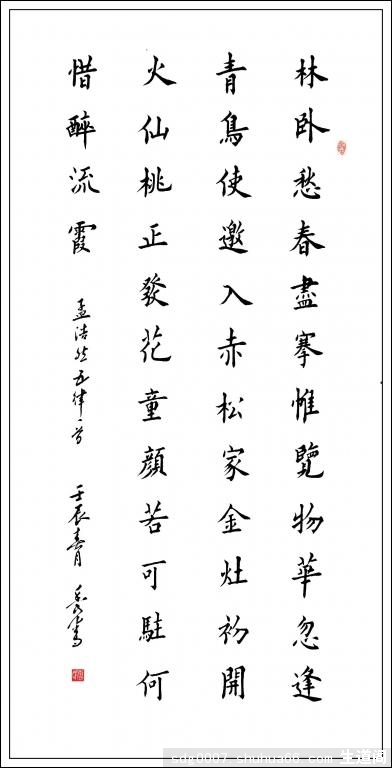 林卧愁春盡搴帷覽物華忽逢
青鳥使邀入赤松家金灶初開
火仙桃正發花童顏若可駐何
惜醉流霞 孟浩然五律一首 壬辰春月
sdg0007.shuhua66.com 生道阁